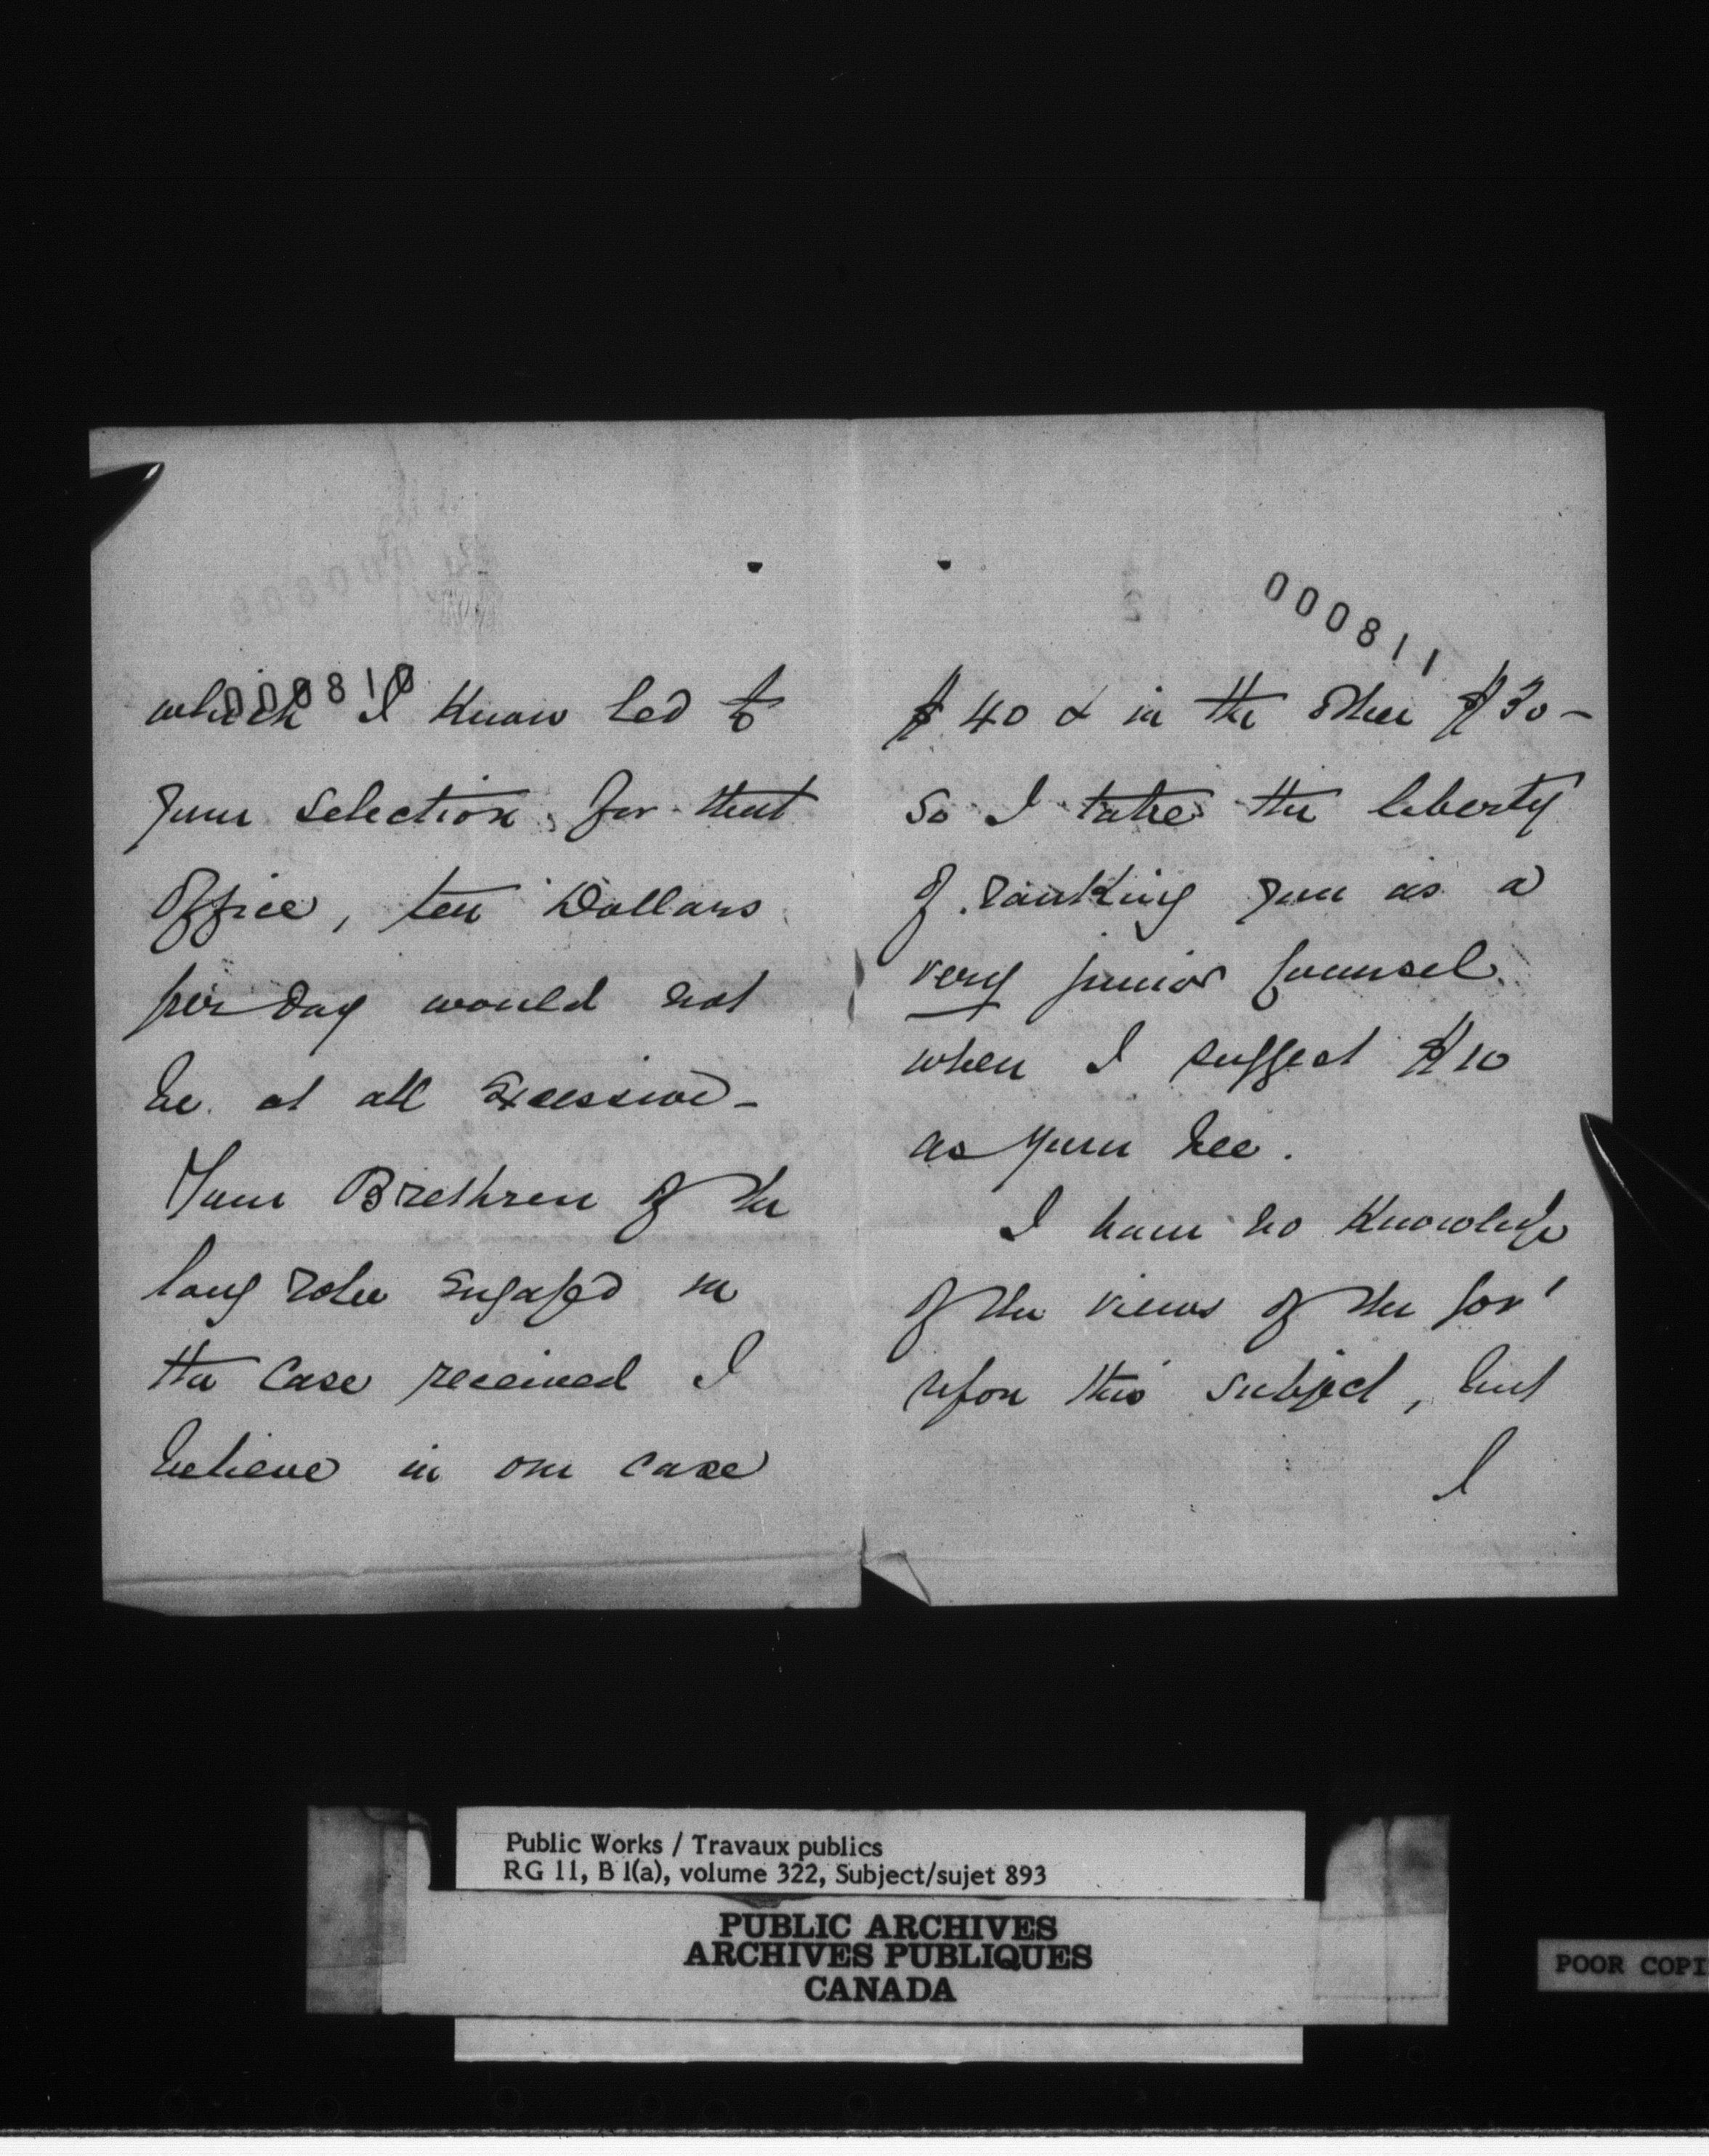 000810
which I know led to
your selection for that
Office, ten Dollars
per Day would not
be at all Excessive -
Your Brethren of the
long robe Engaged in
the Case received I
believe in one case
000811
$40 & in the other $30 -
so I take the liberty
of ranking you as a
very junior Counsel
when I suggest $10
as your fee.
I have no Knowledge
of the views of the Gov'
upon this subject, but
I
Public Works / Travaux publics
RG 11, B 1(a), volume 322, Subject/sujet 893
PUBLIC ARCHIVES
ARCHIVES PUBLIQUES
CANADA
POOR COPI